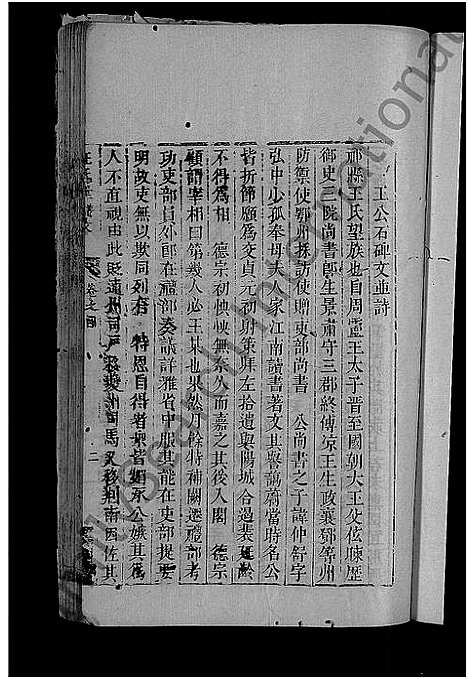 王公石碑文並詩
祁縣王氏望族也自周靈王太子晉至國朝大王父弦暕歷
御史三院尚書郎生景肅守三郡終傅涼王生政襄鄧等州
防禦使鄂州採訪使贈吏部尚書 公尚書之子諱仲舒字
弘中少孤奉母夫人家江南讀書著文其譽藹蔚當時名公
皆折節願為交貞元初射策拜左拾遺與陽城合遏裴延齡
不得為相 德宗初怏怏無奈久而嘉之其後入閣 德宗
顧謂宰相曰第幾人必王某也果然月餘特補闕遷禮部考
功吏部員外郎在禮部奏議詳雅省中服其能在吏部提要
明故吏無以欺同列有 特恩自得者眾皆媚承公嫉其為
人不直視由此貶連州司戶移夔州司馬又移荊南因佐其
卷之四
二
International